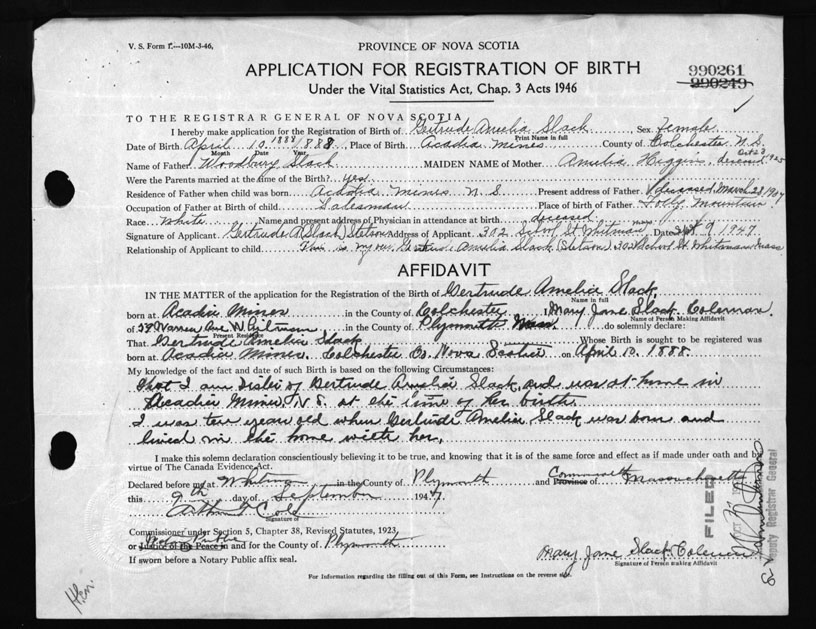 V. S. Form 1.—10M-3-46,
PROVINCE OF NOVA SCOTIA
APPLICATION FOR REGISTRATION OF BIRTH
990261
990249
Under the Vital Statistics Act, Chap. 3 Acts 1946
TO THE REGISTRAR GENERAL OF NOVA SCOTIA
I hereby make application for the Registration of Birth of Gertrude Amelia Slack Sex Female
Print Name in full
Date of Birth April 10 1888 1888 Place of Birth Acadia Mines County of Colchester N.S.
Month Date Year
Name of Father Woodbury Slack MAIDEN NAME of Mother Amelia Huggin, deceased
Were the Parents married at the time of Birth? yes
Residence of Father when child was born Acadia Mines N S Present address of Father deceased March 28
Occupation of Father at Birth of child Salesman Place of birth of Father Folly Mountain
Race White Name and present address of Physician in attendance at birth deceased
Signature of Applicant Gertrude A (Slack) Stetson Address of Applicant 302 School St. Whitman Mass Date Sept 9 1947
Relationship of Applicant to child This is my Gertrude Amelia Slack (Stetson) 302 School St. Whitman Mass
AFFIDAVIT
IN THE MATTER of the application for the Registration of the Birth of Gertrude Amelia Slack,
Name in full
born at Acadia Mines in the County of Colchester I, Mary Jane Slack Coleman
Name of Person Making Affidavit
of 37 Warren Ave W. in the County of Plymouth Mass. do solemnly declare:
Present Residence
That Gertrude Amelia Slack Whose Birth is sought to be registered was
born at Acadia Mines, Colchester Co. Nova Scotia on April 10, 1888.
My knowledge of the fact and date of such Birth is based on the following Circumstances:
That I am Sister of Gertrude Amelia Slack, and was at home in
Acadia Mines, N S. at the time of her birth.
I was ten years old when Gertrude Amelia Slack was born and
lived in the home with her.
I make this solemn declaration conscientiously believing it to be true, and knowing that it is of the same force and effect as if made under oath and by
virtue of The Canada Evidence Act.
Declared before me at Whitman in the County of Plymouth and Commonwealth Province of Massachusetts
this 9th day of September 1947.
Arthur
Signature of
Commissioner under Section 5, Chapter 38, Revised Statutes, 1923,
or Notary Public Justice of the Peace in and for the County of Plymouth
If sworn before a Notary Public affix seal.
Mary Jane Slack Coleman
Signature of Person making Affidavit
For Information regarding the filling out of this Form, see Instructions on the reverse side.
FILED
Deputy Registrar General